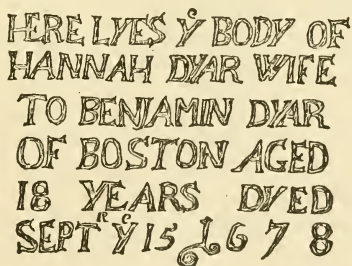 HERE LYES Yᵉ BODY OF
HANNAH DYAR WIFE
TO BENJAMIN DYAR
OF BOSTON AGED
18 YEARS DYED
SEPTʳ Yᵉ 15 1678